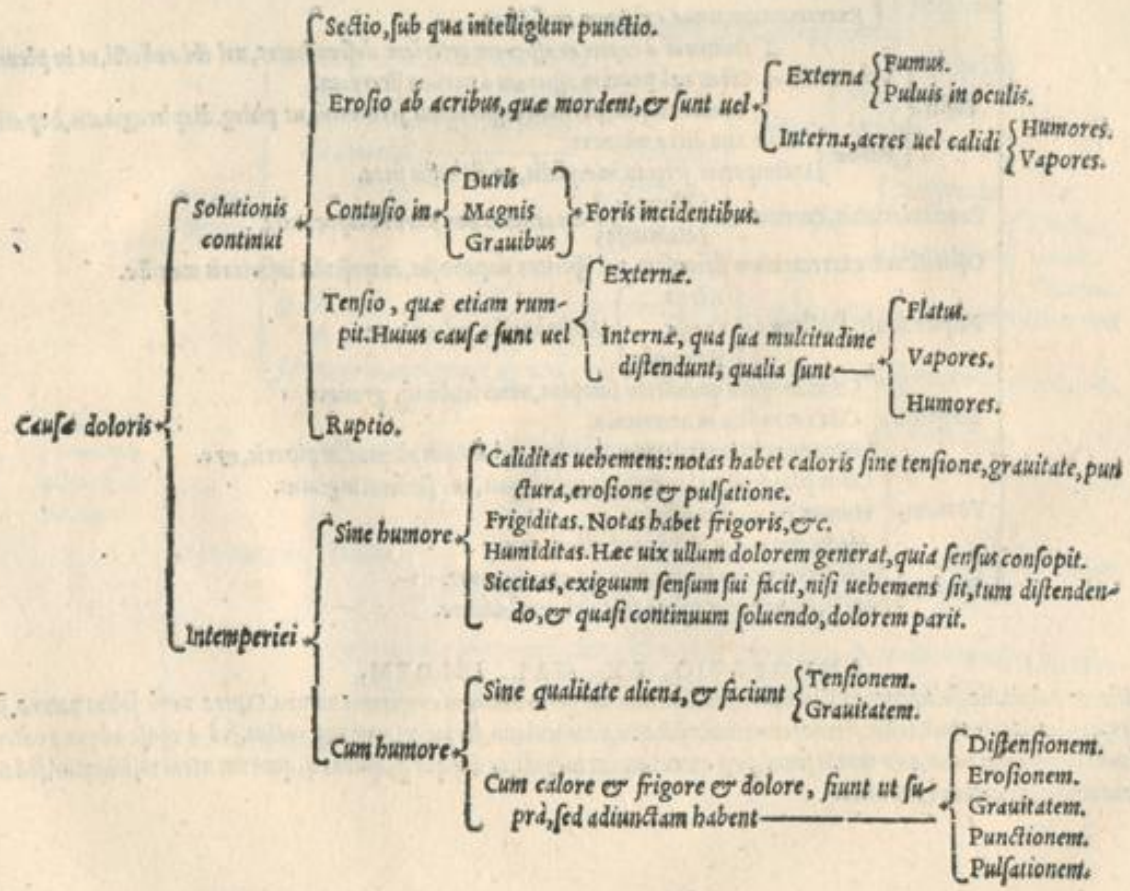 Sectio, sub qua intelligitur punctio.
Erosio ab acribus, quæ mordent, & sunt uel
Externa
Fumus.
Puluis in oculis.
Interna, acres uel calidi
Humores.
Vapores.
Solutionis
continui
Contusio in
Duris
Magnis
Grauibus
Foris incidentibus.
Tensio, quæ etiam rum-
pit. Huius causæ sunt uel
Externæ.
Internæ, qua sua multitudine
distendunt, qualia sunt
Flatus.
Vapores.
Humores.
Ruptio.
Causæ doloris
Intemperiei
Sine humore
Caliditas uehemens: notas habet caloris sine tensione, grauitate, pun
ctura, erosione & pulsatione.
Frigiditas. Notas habet frigoris, &c.
Humiditas. Hæc uix ullum dolorem generat, quia sensus consopit.
Siccitas, exiguum sensum sui facit, nisi uehemens sit, tum distenden-
do, & quasi continuum soluendo, dolorem parit.
Cum humore
Sine qualitate aliena, & faciunt
Tensionem.
Grauitatem.
Cum calore & frigore & dolore, fiunt ut su-
prà, sed adiunctam habent
Distensionem.
Erosionem.
Grauitatem.
Punctionem.
Pulsationem.